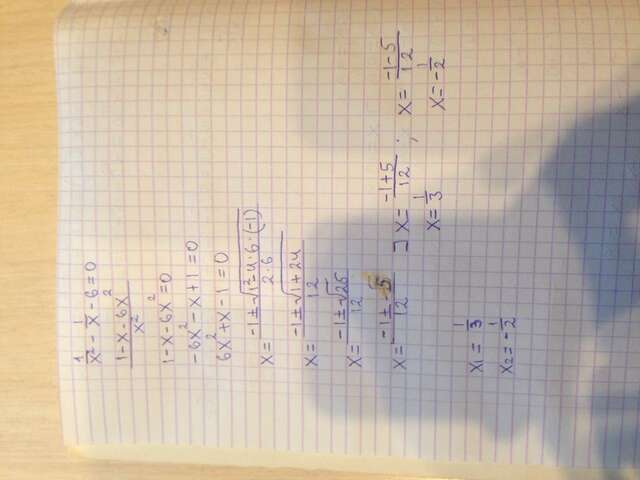 1/x² - 1/x - 6 = 0
(1-x-6x²)/x²
1-x-6x²=0
-6x²-x+1=0
6x²+x-1=0
x= (-1±√(1²-4·6·(-1)))/(2·6)
x= (-1±√(1+24))/12
x= (-1±√25)/12
x= (-1±5)/12 ⊐ x= (-1+5)/12 ; x= (-1-5)/12
x= 1/3 x= -1/2
x₁= 1/3
x₂= -1/2